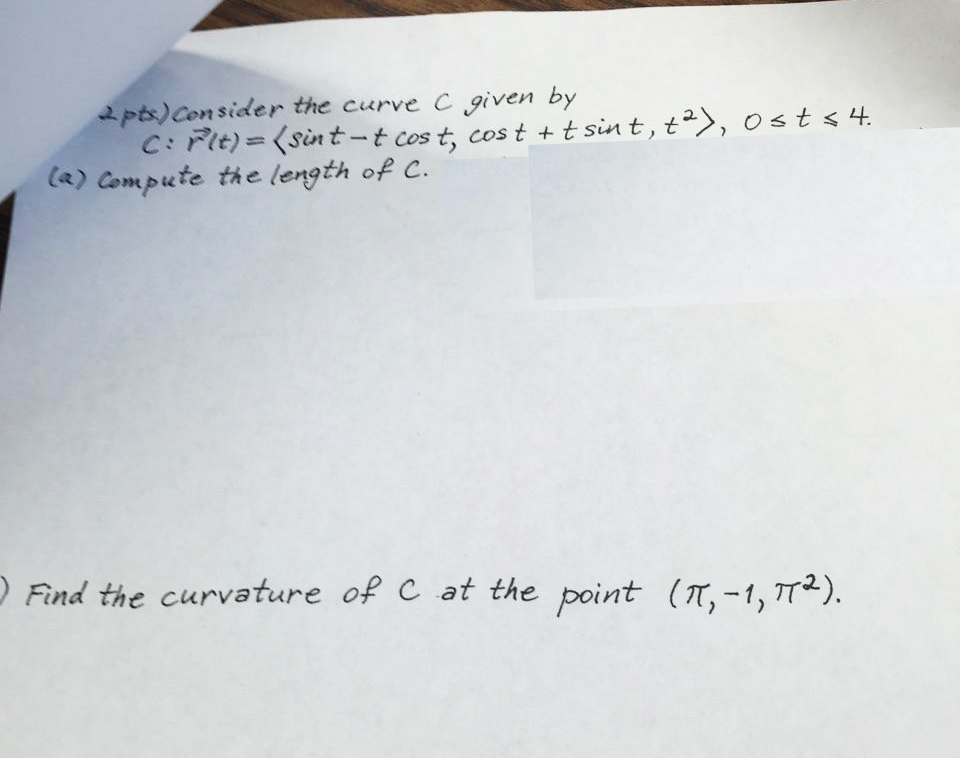 2 pts) Consider the curve C given by
C: r⃗(t) = ⟨sin t - t cos t, cos t + t sin t, t²⟩, 0 ≤ t ≤ 4.
(a) Compute the length of C.
) Find the curvature of C at the point (π, -1, π²).